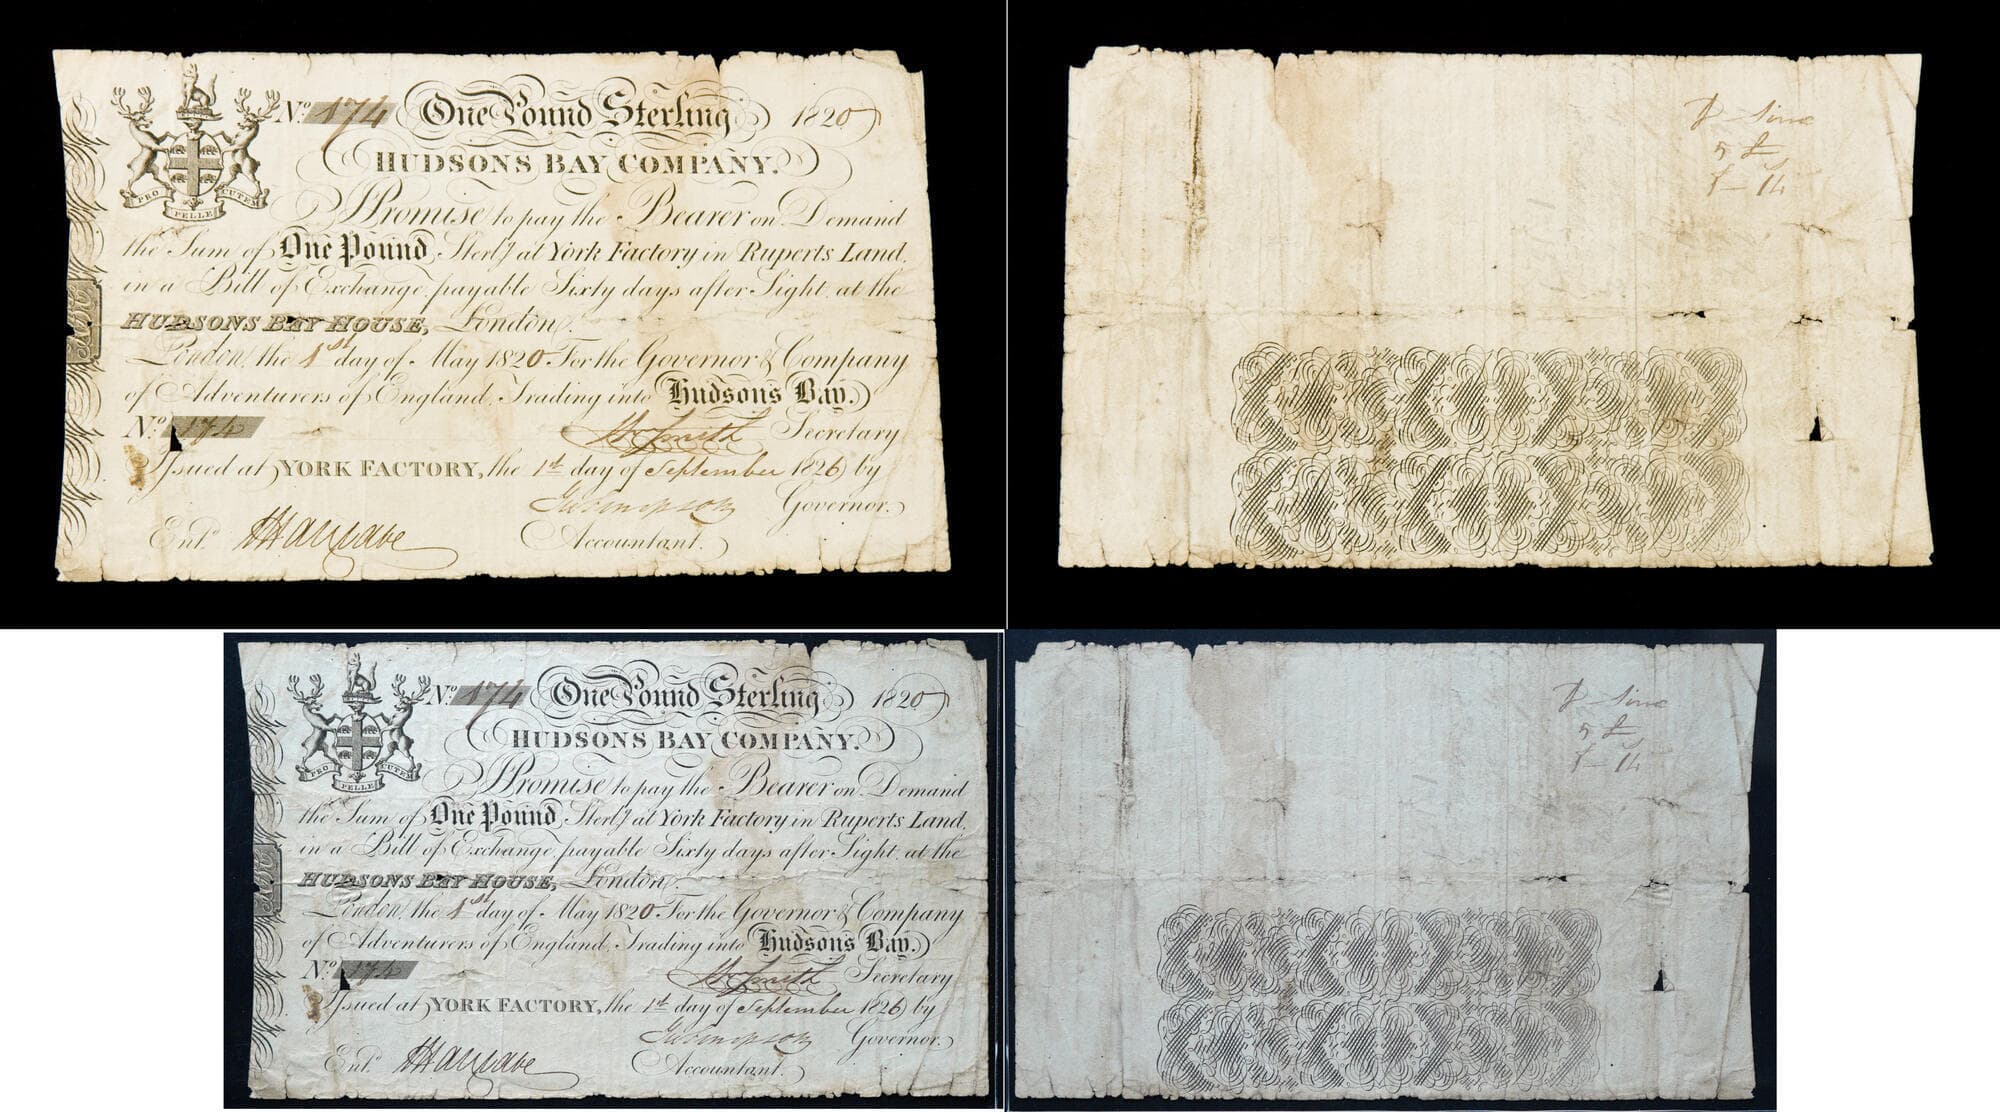 No. 174 One Pound Sterling 1820
HUDSONS BAY COMPANY.
PRO PELLE CUTEM
I Promise to pay the Bearer on Demand
the Sum of One Pound Sterlg at York Factory in Ruperts Land,
in a Bill of Exchange, payable Sixty days after Sight, at the
HUDSONS BAY HOUSE, London.
London, the 1st day of May 1820 For the Governor & Company
of Adventurers of England, Trading into Hudsons Bay.
No. 174 Wm Smith Secretary
Issued at YORK FACTORY, the 1st day of September 1826 by
Geo Simpson Governor.
Entd. J Hargrave Accountant.
5 £
1 - 14
No. 174 One Pound Sterling 1820
HUDSONS BAY COMPANY.
PRO PELLE CUTEM
I Promise to pay the Bearer on Demand
the Sum of One Pound Sterlg at York Factory in Ruperts Land,
in a Bill of Exchange, payable Sixty days after Sight, at the
HUDSONS BAY HOUSE, London.
London, the 1st day of May 1820 For the Governor & Company
of Adventurers of England, Trading into Hudsons Bay.
No. 174 Wm Smith Secretary
Issued at YORK FACTORY, the 1st day of September 1826 by
Geo Simpson Governor.
Entd. J Hargrave Accountant.
5 £
1 - 14